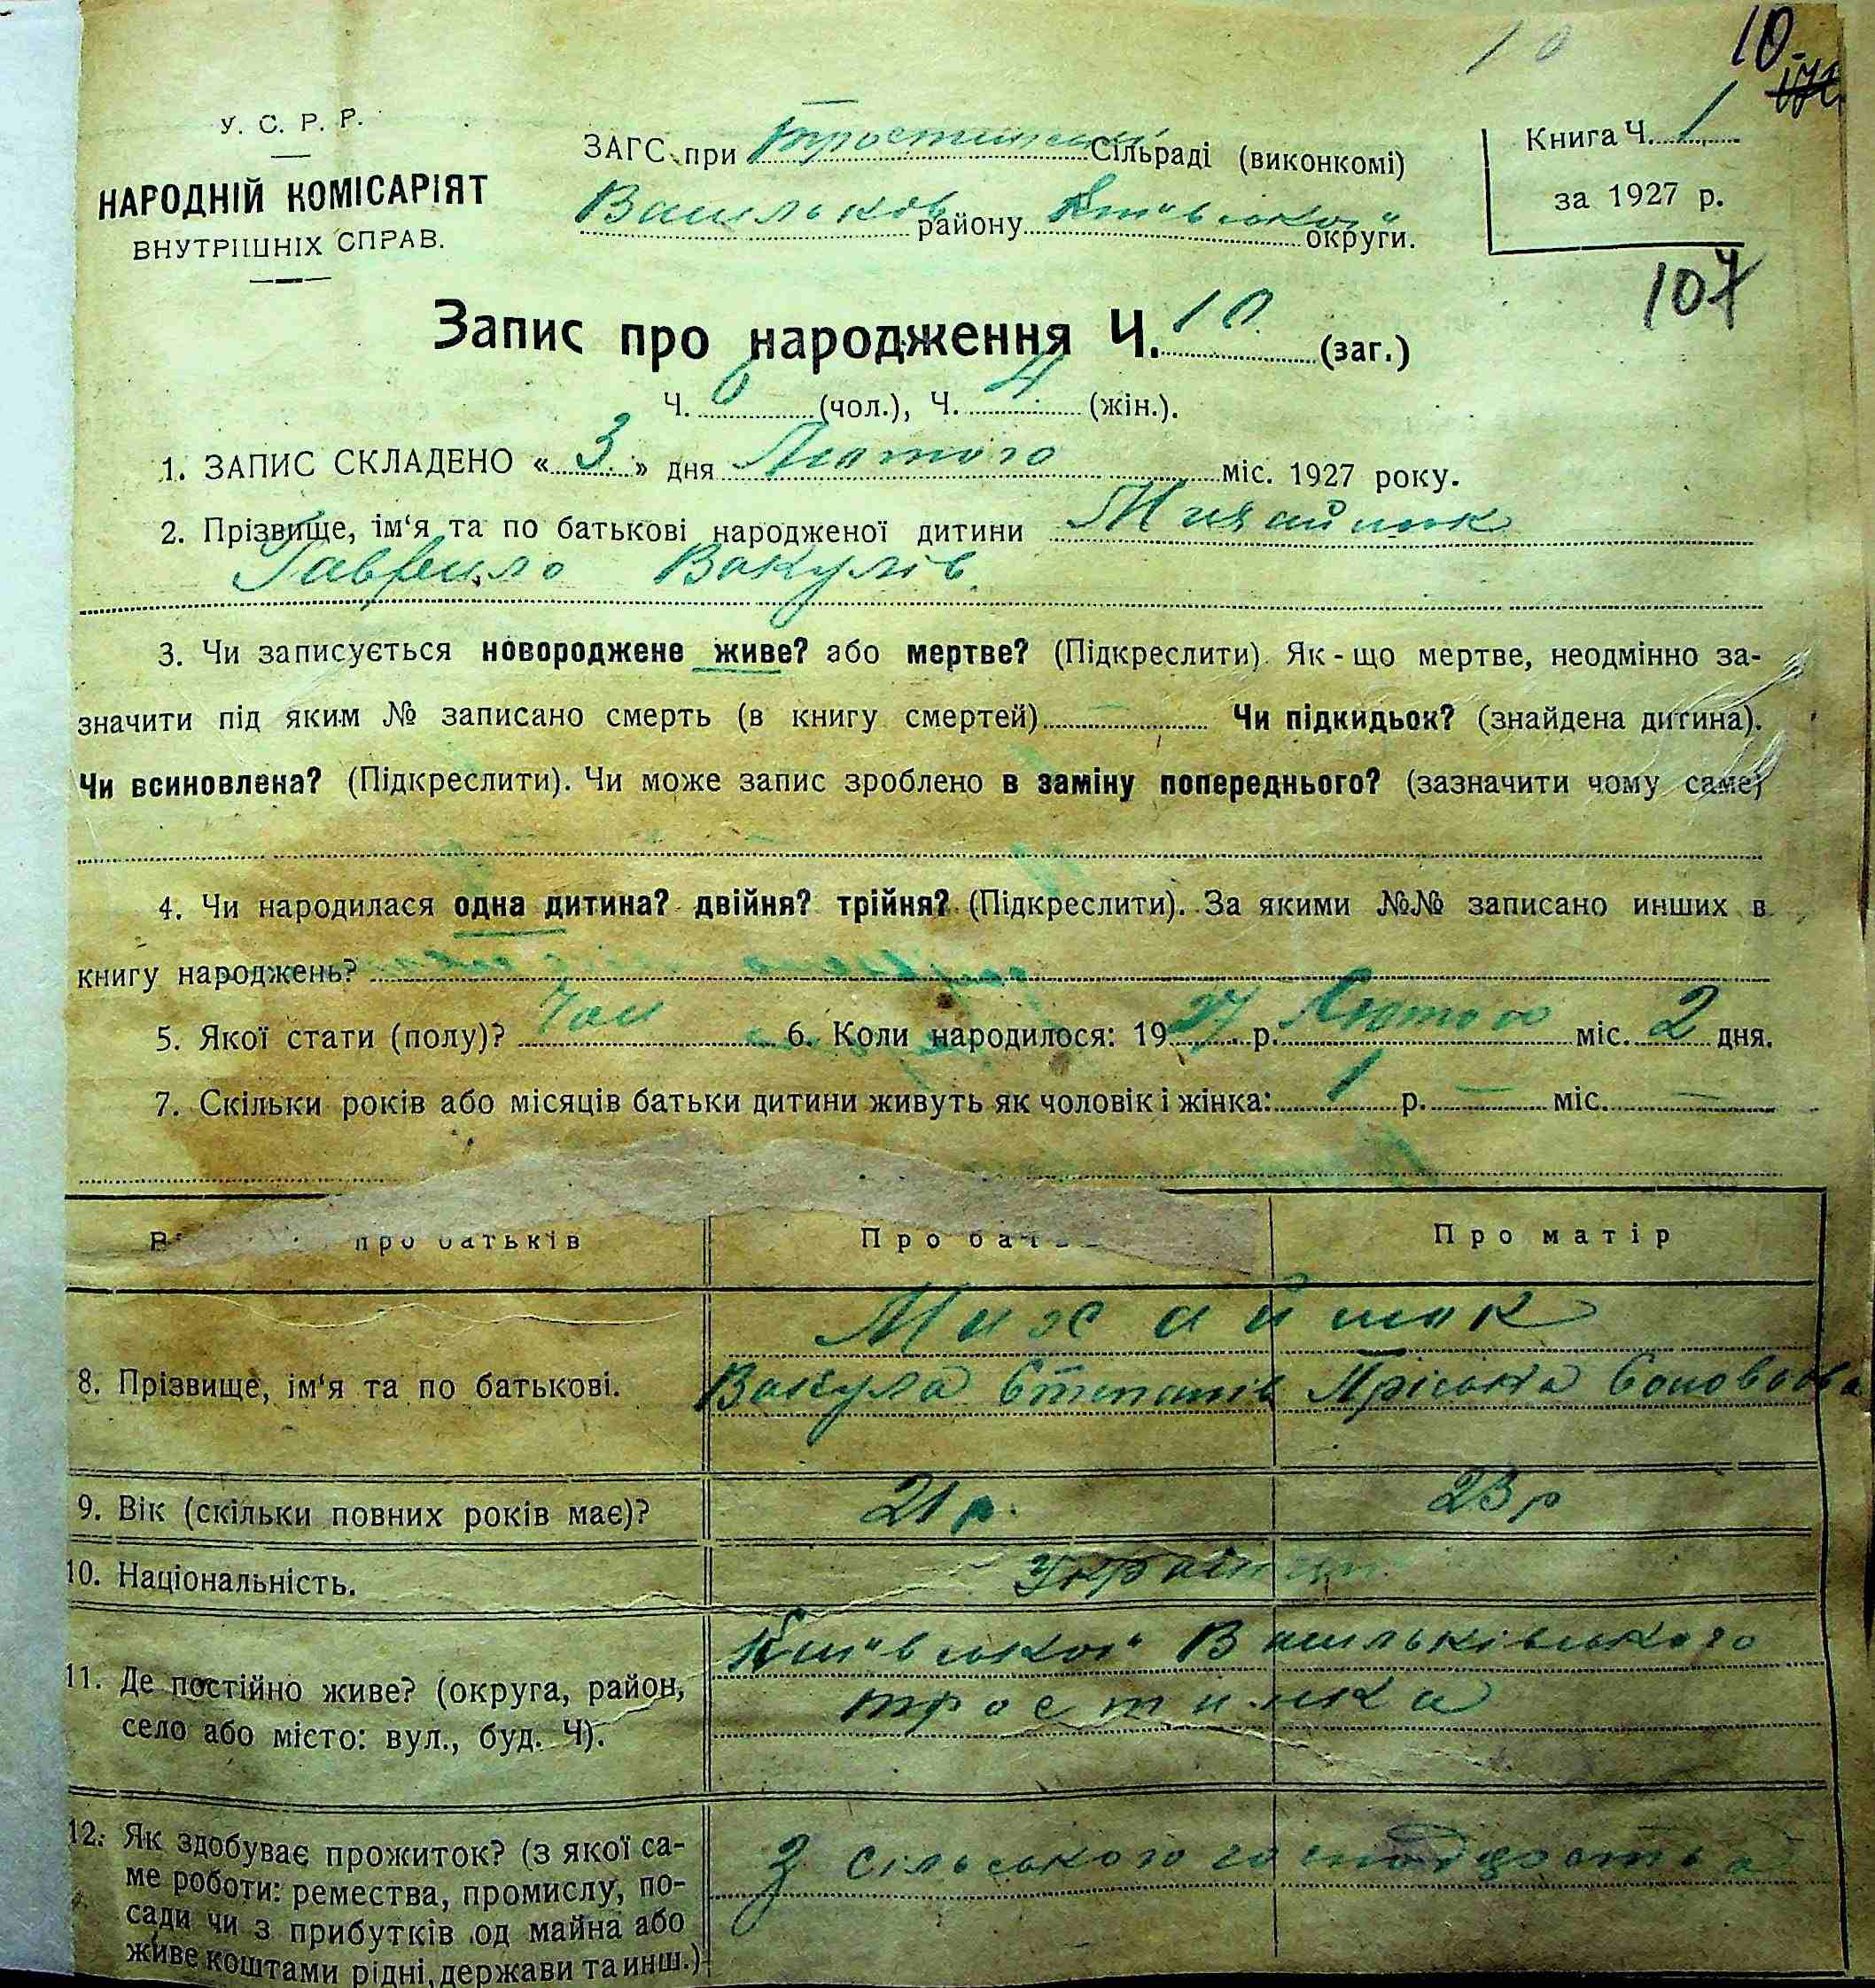 10 10
У. С. Р. Р.
НАРОДНІЙ КОМІСАРІЯТ
ВНУТРІШНІХ СПРАВ.
ЗАГС при Тростинській Сільраді (виконкомі)
Васильків району Київської округи.
Книга Ч. 1
за 1927 р.
107
Запис про народження Ч. 10 (заг.)
Ч. 6 (чол.), Ч. 4 (жін.).
1. ЗАПИС СКЛАДЕНО « 3 » дня Лютого міс. 1927 року.
2. Прізвище, ім'я та по батькові народженої дитини Михайлюк
Гаврило Вакулів
3. Чи записується новороджене живе? або мертве? (Підкреслити). Як-що мертве, неодмінно за-
значити під яким № записано смерть (в книгу смертей) — Чи підкидьок? (знайдена дитина).
Чи всиновлена? (Підкреслити). Чи може запис зроблено в заміну попереднього? (зазначити чому саме)
4. Чи народилася одна дитина? двійня? трійня? (Підкреслити). За якими №№ записано инших в
книгу народжень?
5. Якої стати (полу)? Чол 6. Коли народилося: 1927 р. Лютого міс. 2 дня.
7. Скільки років або місяців батьки дитини живуть як чоловік і жінка: 1 р. — міс. —
про батьків Про бат Про матір
Михайлюк
8. Прізвище, ім'я та по батькові. Вакула Степанів Пріська
9. Вік (скільки повних років має)? 21 р. 23 р
10. Національність. Українці
11. Де постійно живе? (округа, район,
село або місто: вул., буд. Ч).
Київської Васильківського
Тростинка
12. Як здобуває прожиток? (з якої са-
ме роботи: ремества, промислу, по-
сади чи з прибутків од майна або
живе коштами рідні, держави та инш.)
З сільського господарства